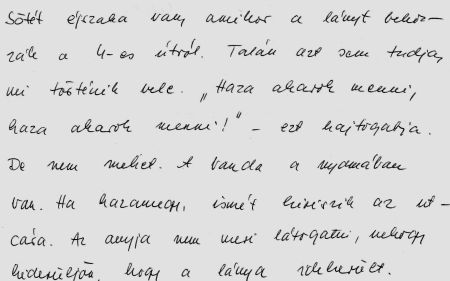 Sötét éjszaka van, amikor a lányt behoz-
zák a 4-es útról. Talán azt sem tudja,
mi történik vele. „Haza akarok menni,
haza akarok menni!" – ezt hajtogatja.
De nem mehet. A banda a nyomában
van. Ha hazamegy, ismét kiviszik az ut-
cára. Az anyja nem meri látogatni, nehogy
kiderüljön, hogy a lánya idekerült.